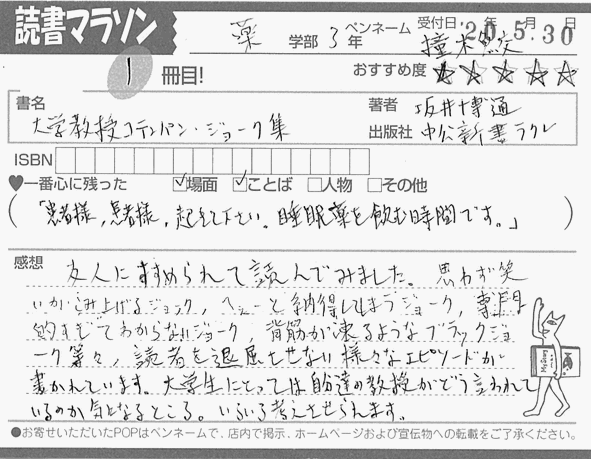 読書マラソン
薬 学部 3年 ペンネーム 撞木鮫 受付日 20年5月30日
1 冊目! おすすめ度 ☆☆☆☆☆
書名 大学教授コテンパン・ジョーク集
著者 坂井博通
出版社 中公新書ラクレ
ISBN
♥一番心に残った ☑場面 ☑ことば □人物 □その他
(「患者様,患者様,起きて下さい。睡眠薬を飲む時間です。」)
感想 友人にすすめられて読んでみました。思わず笑
いがこみ上げるジョーク,へぇーと納得してしまうジョーク,専門
的すぎてわからないジョーク,背筋が凍るようなブラックジョ
ーク等々,読者を退屈させない様々なエピソードが
書かれています。大学生にとっては自分達の教授がどう言われて
いるのか気になるところ。いろいろ考えさせられます。
●お寄せいただいたPOPはペンネームで、店内で掲示、ホームページおよび宣伝物への転載をご了承ください。